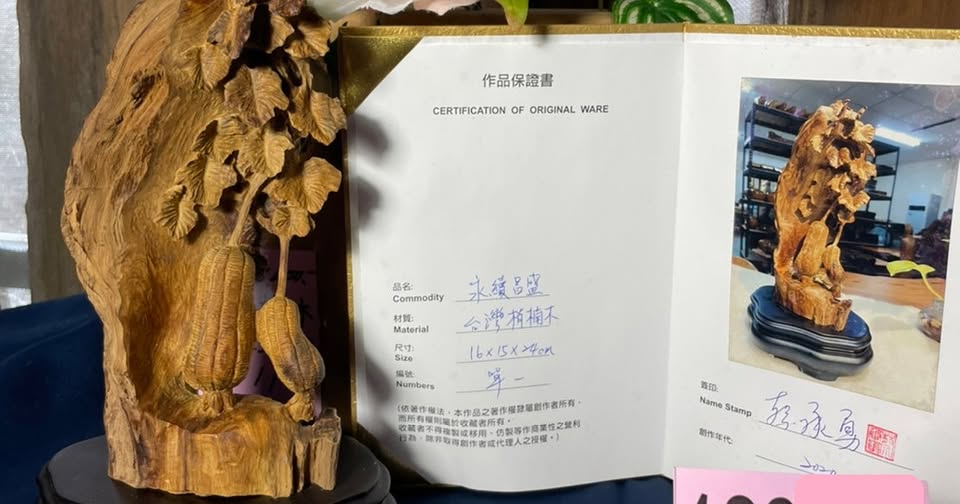 作品保證書
CERTIFICATION OF ORIGINAL WARE
品名:
Commodity 永續昌盛
材質:
Material 台灣梢楠木
尺寸:
Size 16×15×24cm
編號:
Numbers 單一
(依著作權法，本作品之著作權隸屬創作者所有，
而所有權則屬於收藏者所有。
收藏者不得複製或移用、仿製等作商業性之營利
行為，除非取得創作者或代理人之授權。)
簽印:
Name Stamp
創作年代: